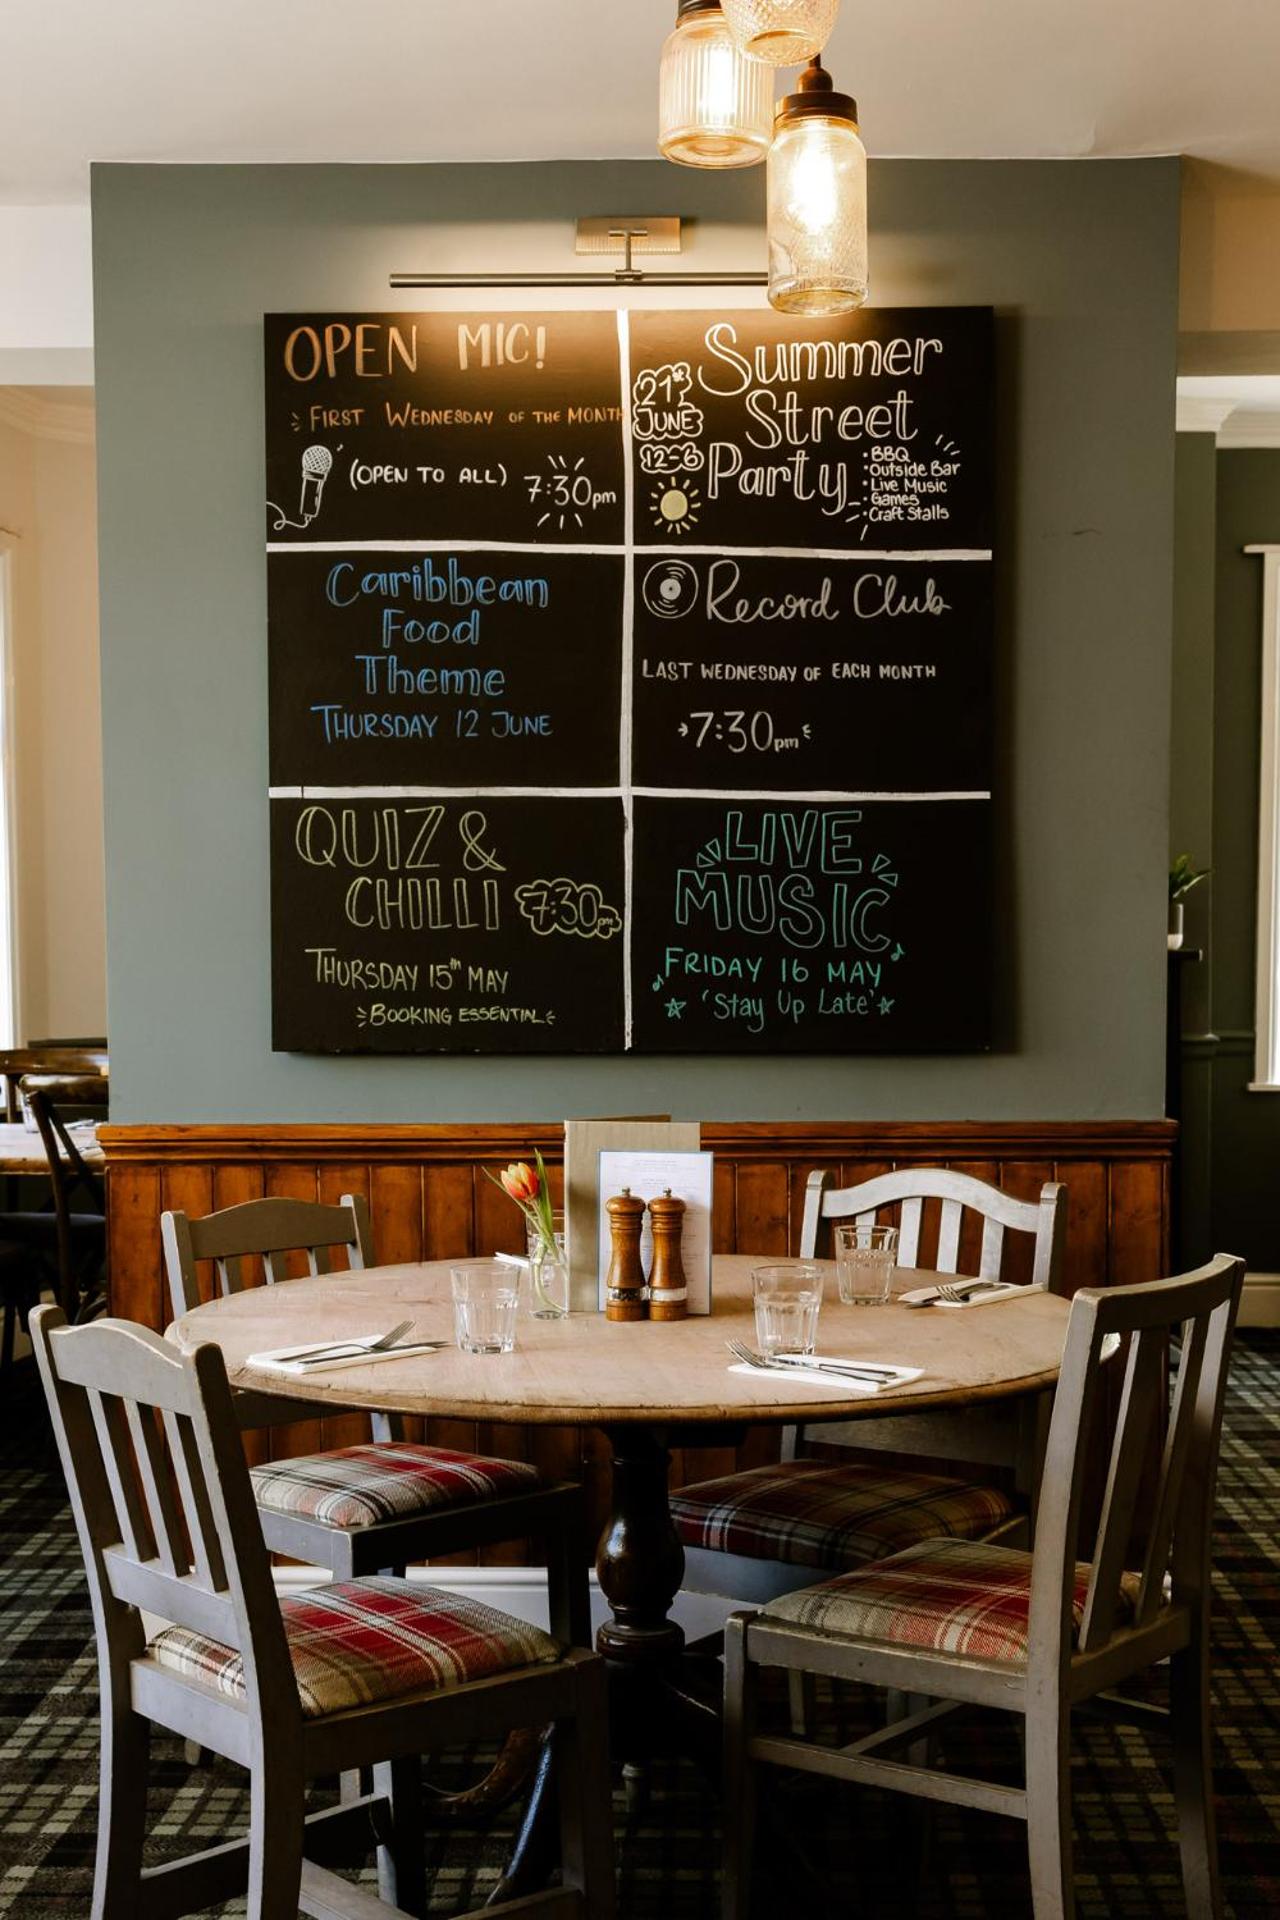 OPEN MIC!
FIRST WEDNESDAY OF THE MONTH
(OPEN TO ALL)
7:30pm
Summer
Street
Party
21st
JUNE
12-6
• BBQ
• Outside Bar
• Live Music
• Games
• Craft Stalls
Caribbean
Food
Theme
THURSDAY 12 JUNE
Record Club
LAST WEDNESDAY OF EACH MONTH
7:30pm
QUIZ &
CHILLI
7:30pm
THURSDAY 15th MAY
BOOKING ESSENTIAL
LIVE
MUSIC
FRIDAY 16 MAY
'Stay Up Late'